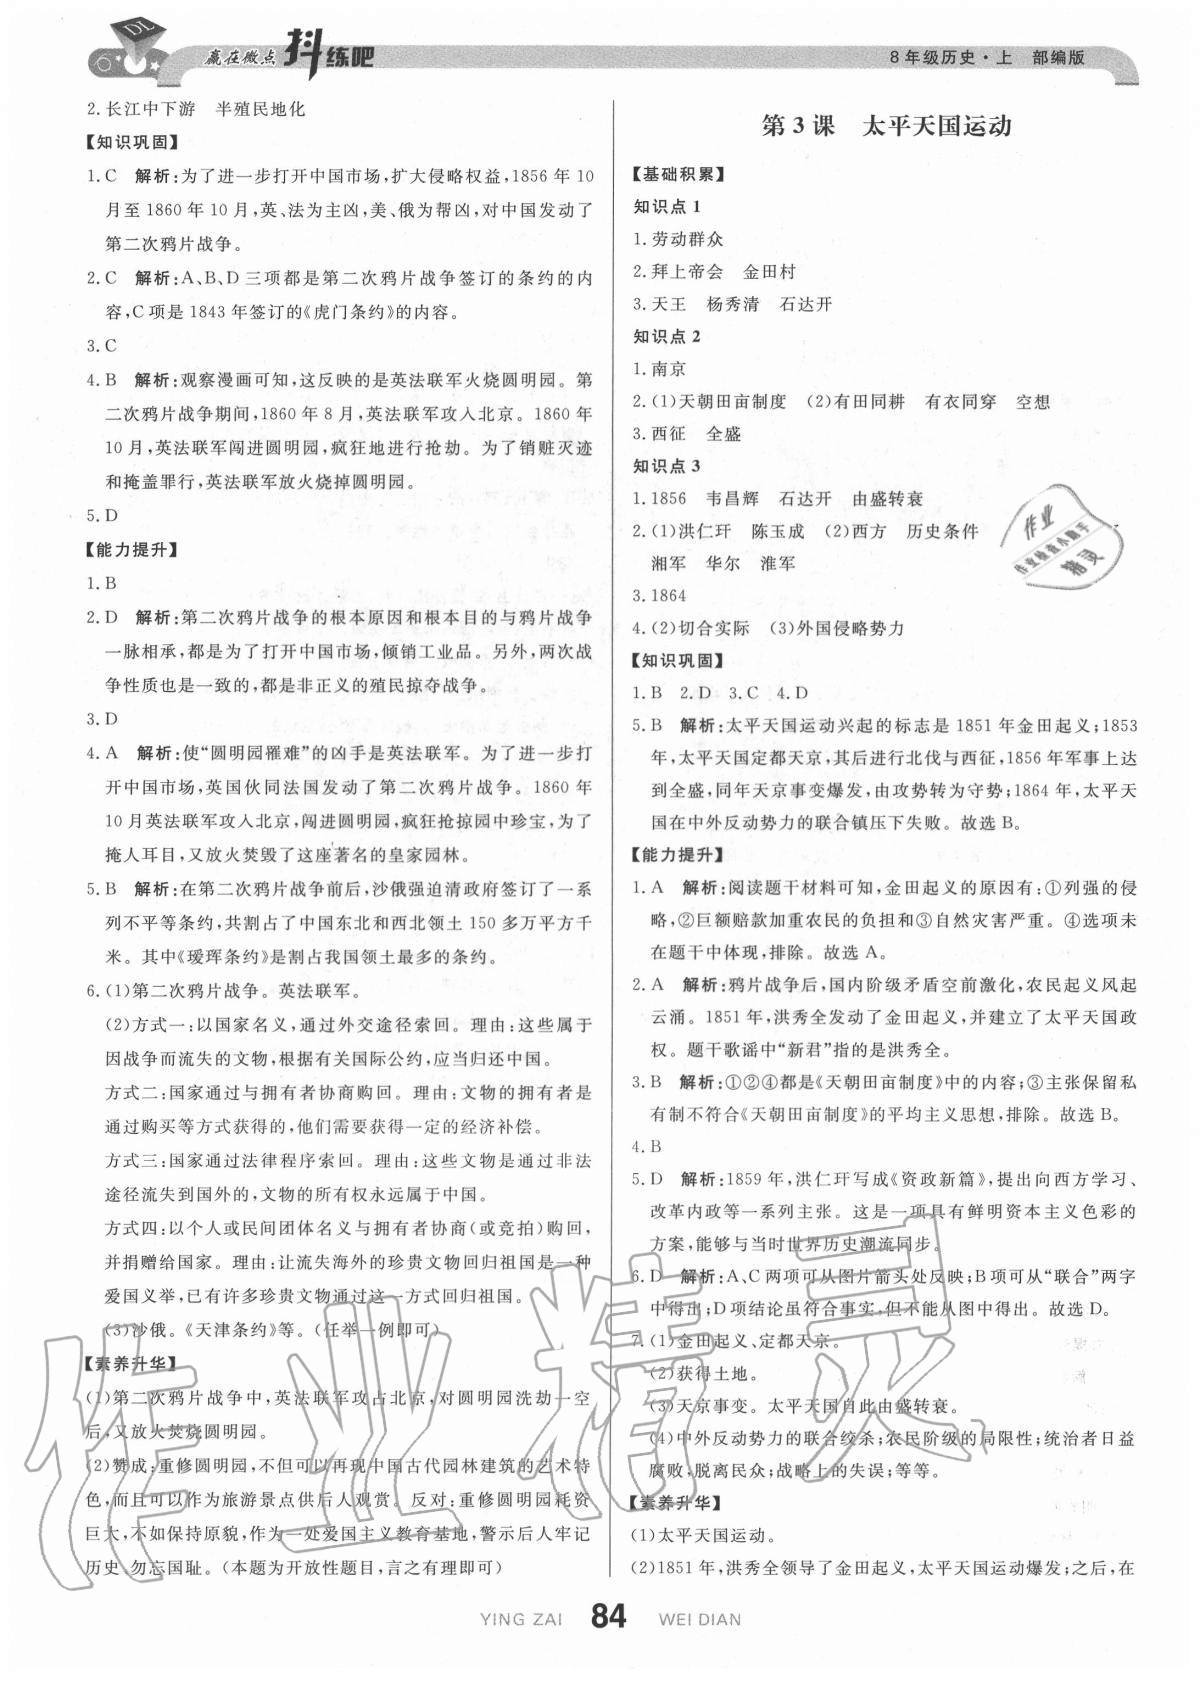 赢在微点 抖练吧
8年级历史·上 部编版
2.长江中下游 半殖民地化
【知识巩固】
1.C 解析:为了进一步打开中国市场,扩大侵略权益,1856 年 10
月至 1860 年 10 月,英、法为主凶,美、俄为帮凶,对中国发动了
第二次鸦片战争。
2.C 解析:A、B、D 三项都是第二次鸦片战争签订的条约的内
容,C 项是 1843 年签订的《虎门条约》的内容。
3.C
4.B 解析:观察漫画可知,这反映的是英法联军火烧圆明园。第
二次鸦片战争期间,1860 年 8 月,英法联军攻入北京。1860 年
10 月,英法联军闯进圆明园,疯狂地进行抢劫。为了销赃灭迹
和掩盖罪行,英法联军放火烧掉圆明园。
5.D
【能力提升】
1.B
2.D 解析:第二次鸦片战争的根本原因和根本目的与鸦片战争
一脉相承,都是为了打开中国市场,倾销工业品。另外,两次战
争性质也是一致的,都是非正义的殖民掠夺战争。
3.D
4.A 解析:使“圆明园罹难”的凶手是英法联军。为了进一步打
开中国市场,英国伙同法国发动了第二次鸦片战争。1860 年
10 月英法联军攻入北京,闯进圆明园,疯狂抢掠园中珍宝,为了
掩人耳目,又放火焚毁了这座著名的皇家园林。
5.B 解析:在第二次鸦片战争前后,沙俄强迫清政府签订了一系
列不平等条约,共割占了中国东北和西北领土 150 多万平方千
米。其中《瑷珲条约》是割占我国领土最多的条约。
6.(1)第二次鸦片战争。英法联军。
(2)方式一:以国家名义,通过外交途径索回。理由:这些属于
因战争而流失的文物,根据有关国际公约,应当归还中国。
方式二:国家通过与拥有者协商购回。理由:文物的拥有者是
通过购买等方式获得的,他们需要获得一定的经济补偿。
方式三:国家通过法律程序索回。理由:这些文物是通过非法
途径流失到国外的,文物的所有权永远属于中国。
方式四:以个人或民间团体名义与拥有者协商(或竞拍)购回,
并捐赠给国家。理由:让流失海外的珍贵文物回归祖国是一种
爱国义举,已有许多珍贵文物通过这一方式回归祖国。
(3)沙俄。《天津条约》等。(任举一例即可)
【素养升华】
(1)第二次鸦片战争中,英法联军攻占北京,对圆明园洗劫一空
后,又放火焚烧圆明园。
(2)赞成:重修圆明园,不但可以再现中国古代园林建筑的艺术特
色,而且可以作为旅游景点供后人观赏。反对:重修圆明园耗资
巨大,不如保持原貌,作为一处爱国主义教育基地,警示后人牢记
历史,勿忘国耻。(本题为开放性题目,言之有理即可)
第 3 课 太平天国运动
【基础积累】
知识点 1
1.劳动群众
2.拜上帝会 金田村
3.天王 杨秀清 石达开
知识点 2
1.南京
2.(1)天朝田亩制度 (2)有田同耕 有衣同穿 空想
3.西征 全盛
知识点 3
1.1856 韦昌辉 石达开 由盛转衰
2.(1)洪仁玕 陈玉成 (2)西方 历史条件
湘军 华尔 淮军
3.1864
4.(2)切合实际 (3)外国侵略势力
【知识巩固】
1.B 2.D 3.C 4.D
5.B 解析:太平天国运动兴起的标志是 1851 年金田起义;1853
年,太平天国定都天京,其后进行北伐与西征,1856 年军事上达
到全盛,同年天京事变爆发,由攻势转为守势;1864 年,太平天
国在中外反动势力的联合镇压下失败。故选 B。
【能力提升】
1.A 解析:阅读题干材料可知,金田起义的原因有:①列强的侵
略,②巨额赔款加重农民的负担和③自然灾害严重。④选项未
在题干中体现,排除。故选 A。
2.A 解析:鸦片战争后,国内阶级矛盾空前激化,农民起义风起
云涌。1851 年,洪秀全发动了金田起义,并建立了太平天国政
权。题干歌谣中“新君”指的是洪秀全。
3.B 解析:①②④都是《天朝田亩制度》中的内容;③主张保留私
有制不符合《天朝田亩制度》的平均主义思想,排除。故选 B。
4.B
5.D 解析:1859 年,洪仁玕写成《资政新篇》,提出向西方学习、
改革内政等一系列主张。这是一项具有鲜明资本主义色彩的
方案,能够与当时世界历史潮流同步。
6.D 解析:A、C 两项可从图片箭头处反映;B 项可从“联合”两字
中得出;D 项结论虽符合事实,但不能从图中得出。故选 D。
7.(1)金田起义、定都天京。
(2)获得土地。
(3)天京事变。太平天国自此由盛转衰。
(4)中外反动势力的联合绞杀;农民阶级的局限性;统治者日益
腐败,脱离民众;战略上的失误;等等。
【素养升华】
(1)太平天国运动。
(2)1851 年,洪秀全领导了金田起义,太平天国运动爆发;之后,在
作业
作业检查小助手
精灵
作业精灵
YING ZAI 84 WEI DIAN